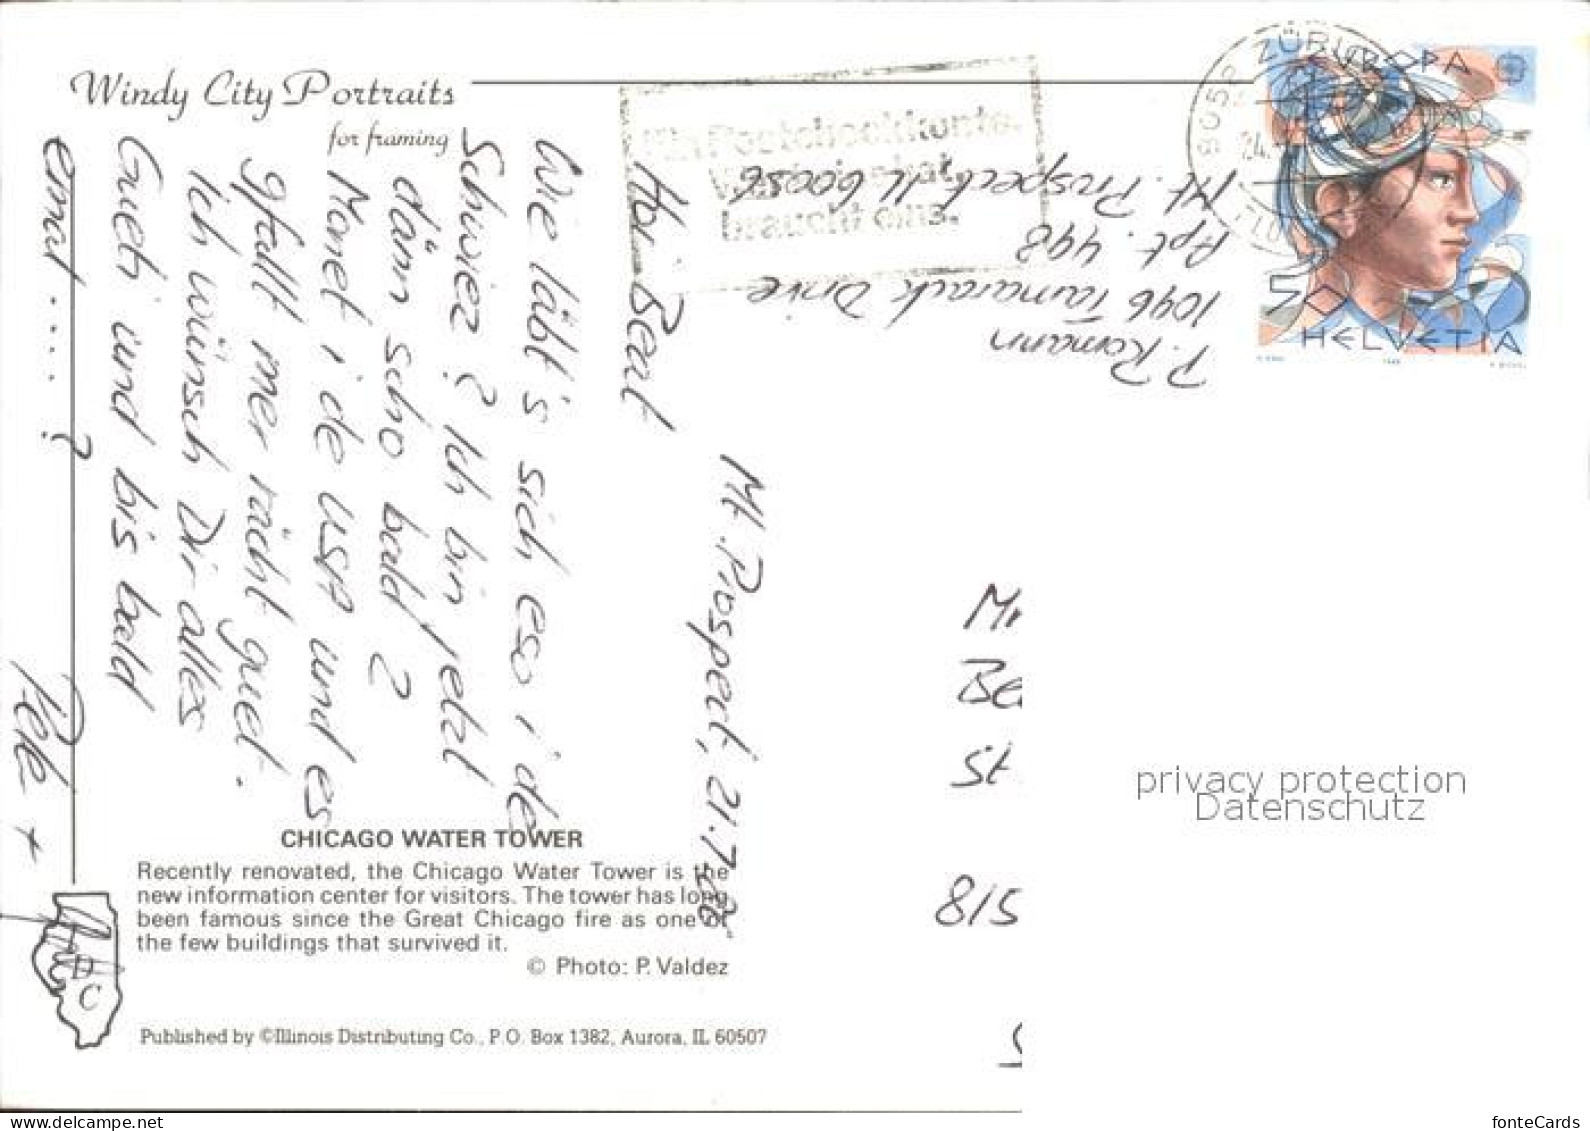 Windy City Portraits
for framing
Mt. Prospect, 21.7.86
Hoi Beat
Wie läbt's sich eso i de
Schwiez? Ich bin jetzt
dänn scho bald 2
Monet i de USA und es
gfallt mer rächt guet.
Ich wünsch Dir alles
Gueti und bis bald
emal ..... ?
Pete
P. Romann
1096 Tamarack Drive
Apt. 448
Mt. Prospect IL 60056
Postcheckkonto
braucht eins.
8058 ZÜRICH
24.
EUROPA
50
HELVETIA
M
Be
St
815
CHICAGO WATER TOWER
Recently renovated, the Chicago Water Tower is the
new information center for visitors. The tower has long
been famous since the Great Chicago fire as one of
the few buildings that survived it.
© Photo: P. Valdez
Published by ©Illinois Distributing Co., P.O. Box 1382, Aurora, IL 60507
privacy protection
Datenschutz
www.ansichtskartenversand.com
fonteCards